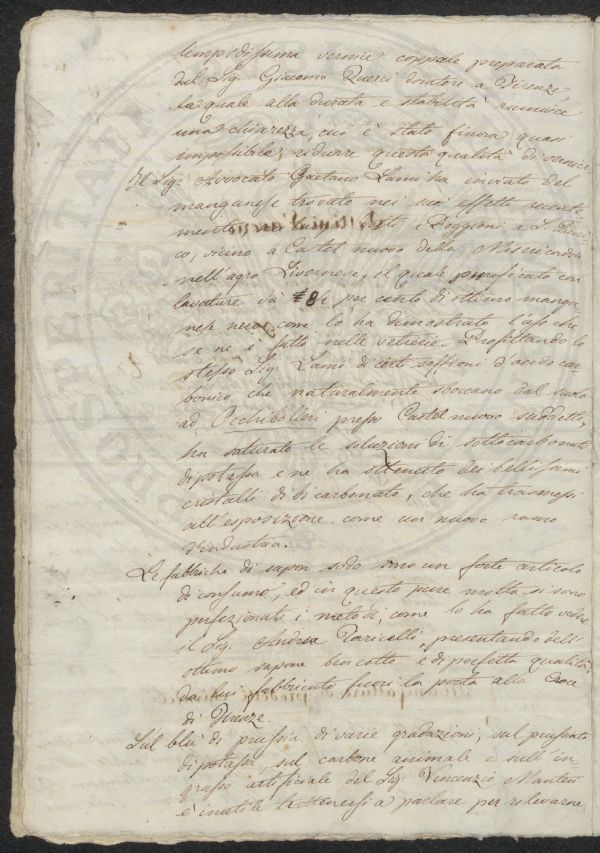 limpidissima vernice coppale preparata
dal Sig. Giacomo doratore a Firenze,
la quale alla durata e stabilità riunisce
una chiarezza, cui è stato finora quasi
impossibile ridurre questa qualità di vernice.
Il Sig: Avvocato Gaetano Lami ha inviato del
manganese trovato nei suoi effetti recente
mente i Poggioni e S.
co, vicino a Castel nuovo della Misericordia
nell'agro Livornese, il quale purificato con
lavature dà 84 per cento di ottimo manga
nese nero, come lo ha dimostrato l'uso che
se ne è fatto nelle vetrerie. Profittando lo
stesso Sig: Lami di certi soffioni d'acido car
bonico che naturalmente sboccano dal suolo
ad Occhibolleri presso Castel nuovo suddetto,
ha saturate le soluzioni di sottocarbonato
di potassa e ne ha ottenuto dei bellissimi
cristalli di bicarbonato, che ha trasmessi
all'esposizione come un nuovo ramo
d'industria.
Le fabbriche di sapon sodo sono un forte articolo
di consumo, ed in questo pure molto si sono
perfezionati i metodi, come lo ha fatto vedere
il Sig: Andrea presentando dell'
ottimo sapone ben cotto e di perfetta qualità
da lui fabbricato fuori la porta alla Croce
di Firenze.
Sul blù di prussia di varie gradazioni, sul prussiato
di potassa, sul carbone animale e sull'in-
grasso artificiale del Sig: Vincenzio Manteri
è inutile trattenersi a parlare per rilevarne